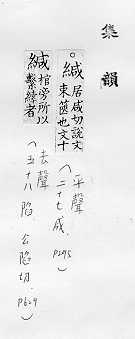 集韻
。緘居咸切說文
束篋也文十
（平聲
二十七咸，p295）
緘棺旁所以
繫綍者
（去聲
五十八陷 公陷切．p629）